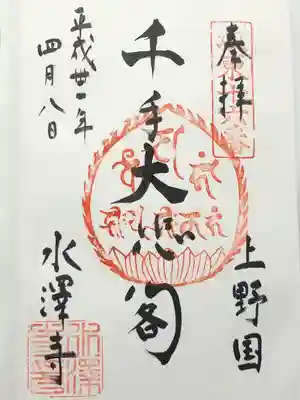 奉拝
上野国
千手大悲閣
平成廿一年
四月八日
水澤寺